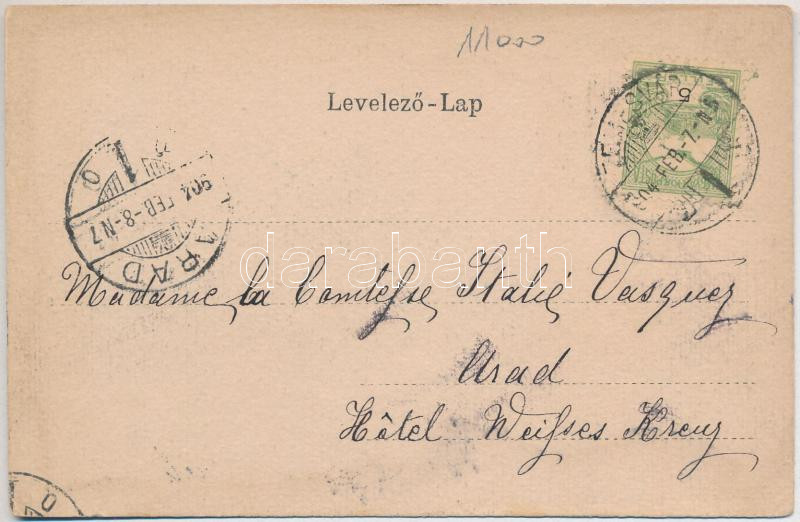 11000
Levelező-Lap
TEMESVÁR
904 FEB.-7.-N 5
5
ARAD
904 FEB-8-N 7
1
darabanth
Madame la Comtesse Italié Vasquez
Arad
Hôtel Weisses Kreuz